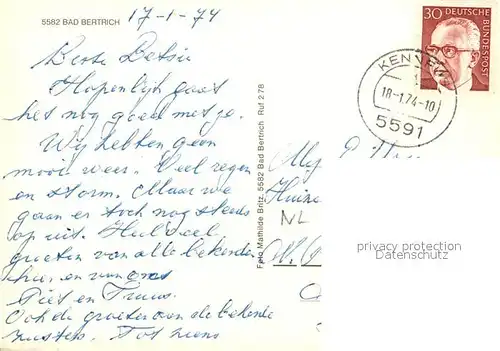 5582 BAD BERTRICH
17-1-74
Beste Betsie
Hopenlijk gaat
het nog goed met je.
Wij hebben geen
mooi weer. Veel regen
en storm. Maar we
gaan er toch nog steeds
op uit. Heel veel
groeten van alle bekenden
hier en van ons
Piet en Truus.
Ook de groeten aan de bekende
zusters. Tot ziens
Foto Mathilde Britz, 5582 Bad Bertrich Ruf 2 78
30 DEUTSCHE BUNDESPOST
KENN
18-1.74-10
5591
NL
privacy protection
Datenschutz